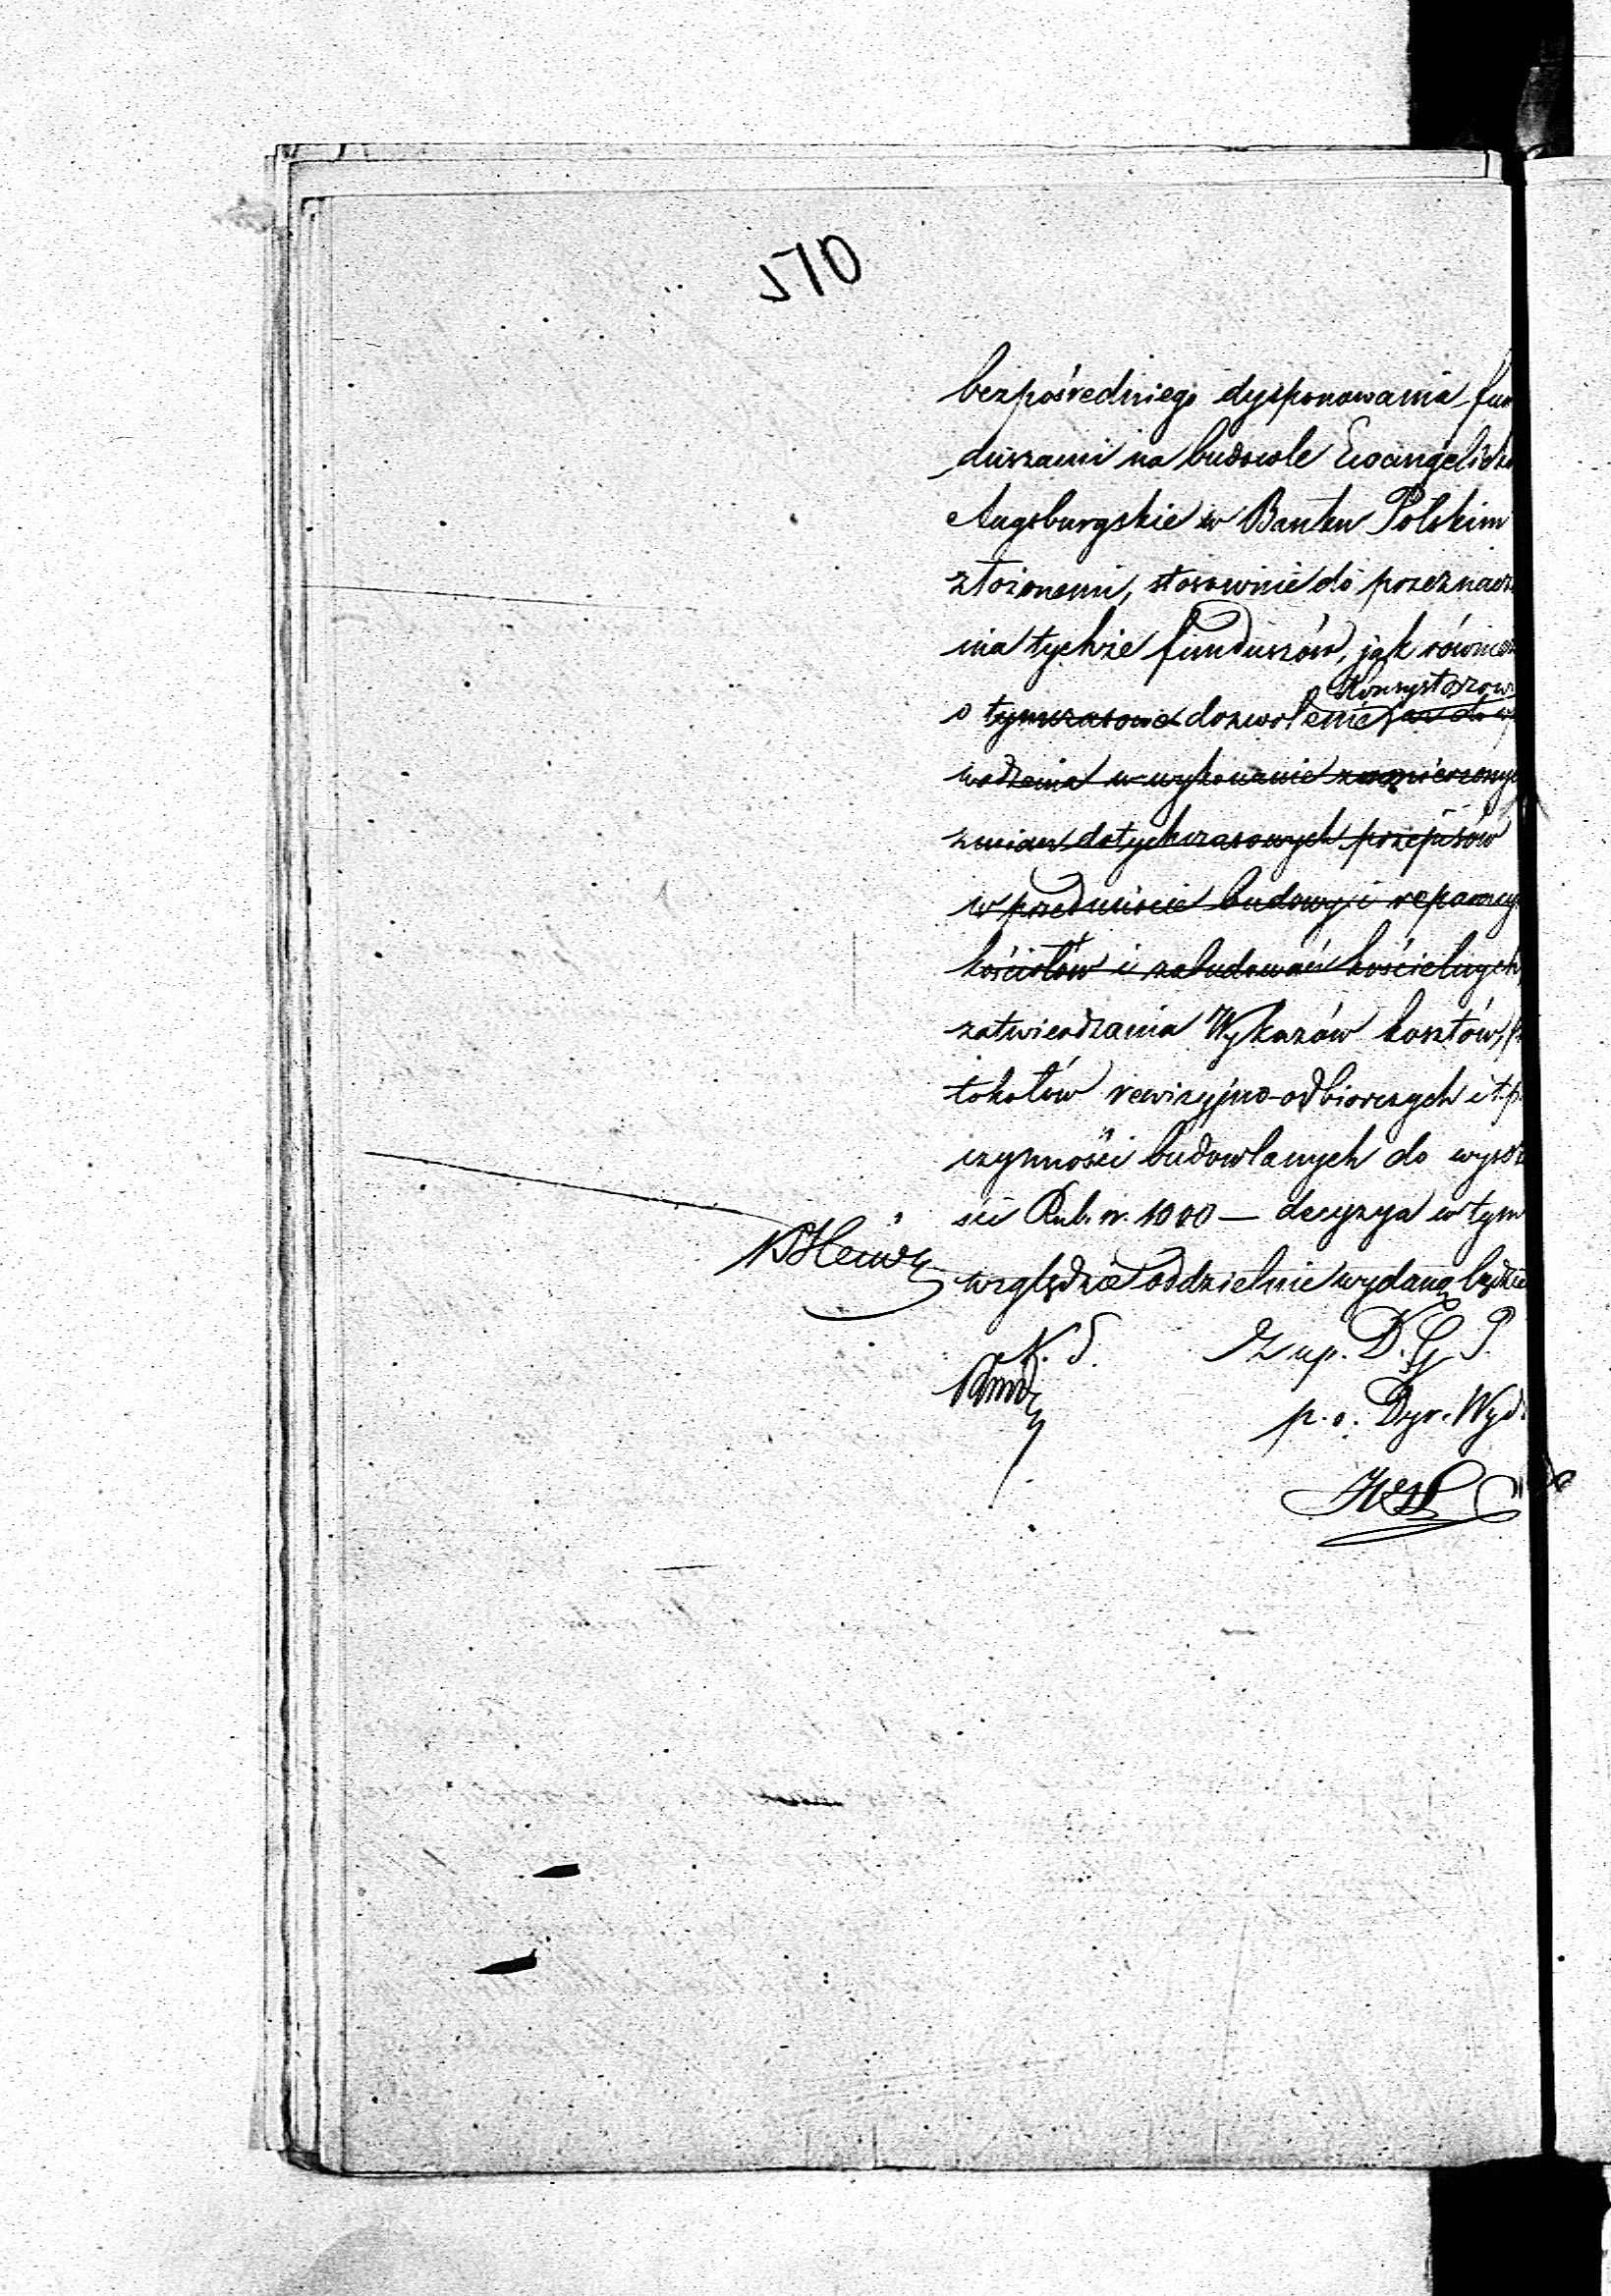 bezpośredniego dysponowania fun
duszami na budowle Ewangelicko
Augsburgskie w Banku Polskim
złożonemi, stosownie do przeznacz
nia tychże funduszów, jak również
Konsystorzow
o tymczasowe dozwolenie
wadzenia w wykonanie zamierzonych
zmian dotychczasowych przepisów
w przedmiocie budowy i reparacyi
kościołów i zabudowań kościelnych,
zatwierdzania Wykazów kosztów,
tokołów rewizyjno-odbiorczych i t.p.
czynności budowlanych do wyso
ści Rub. sr. 1000 — decyzya w tym
względzie oddzielnie wydaną będzie
N. S. Z up. D. G. P.
p. o. Dyr. Wydz